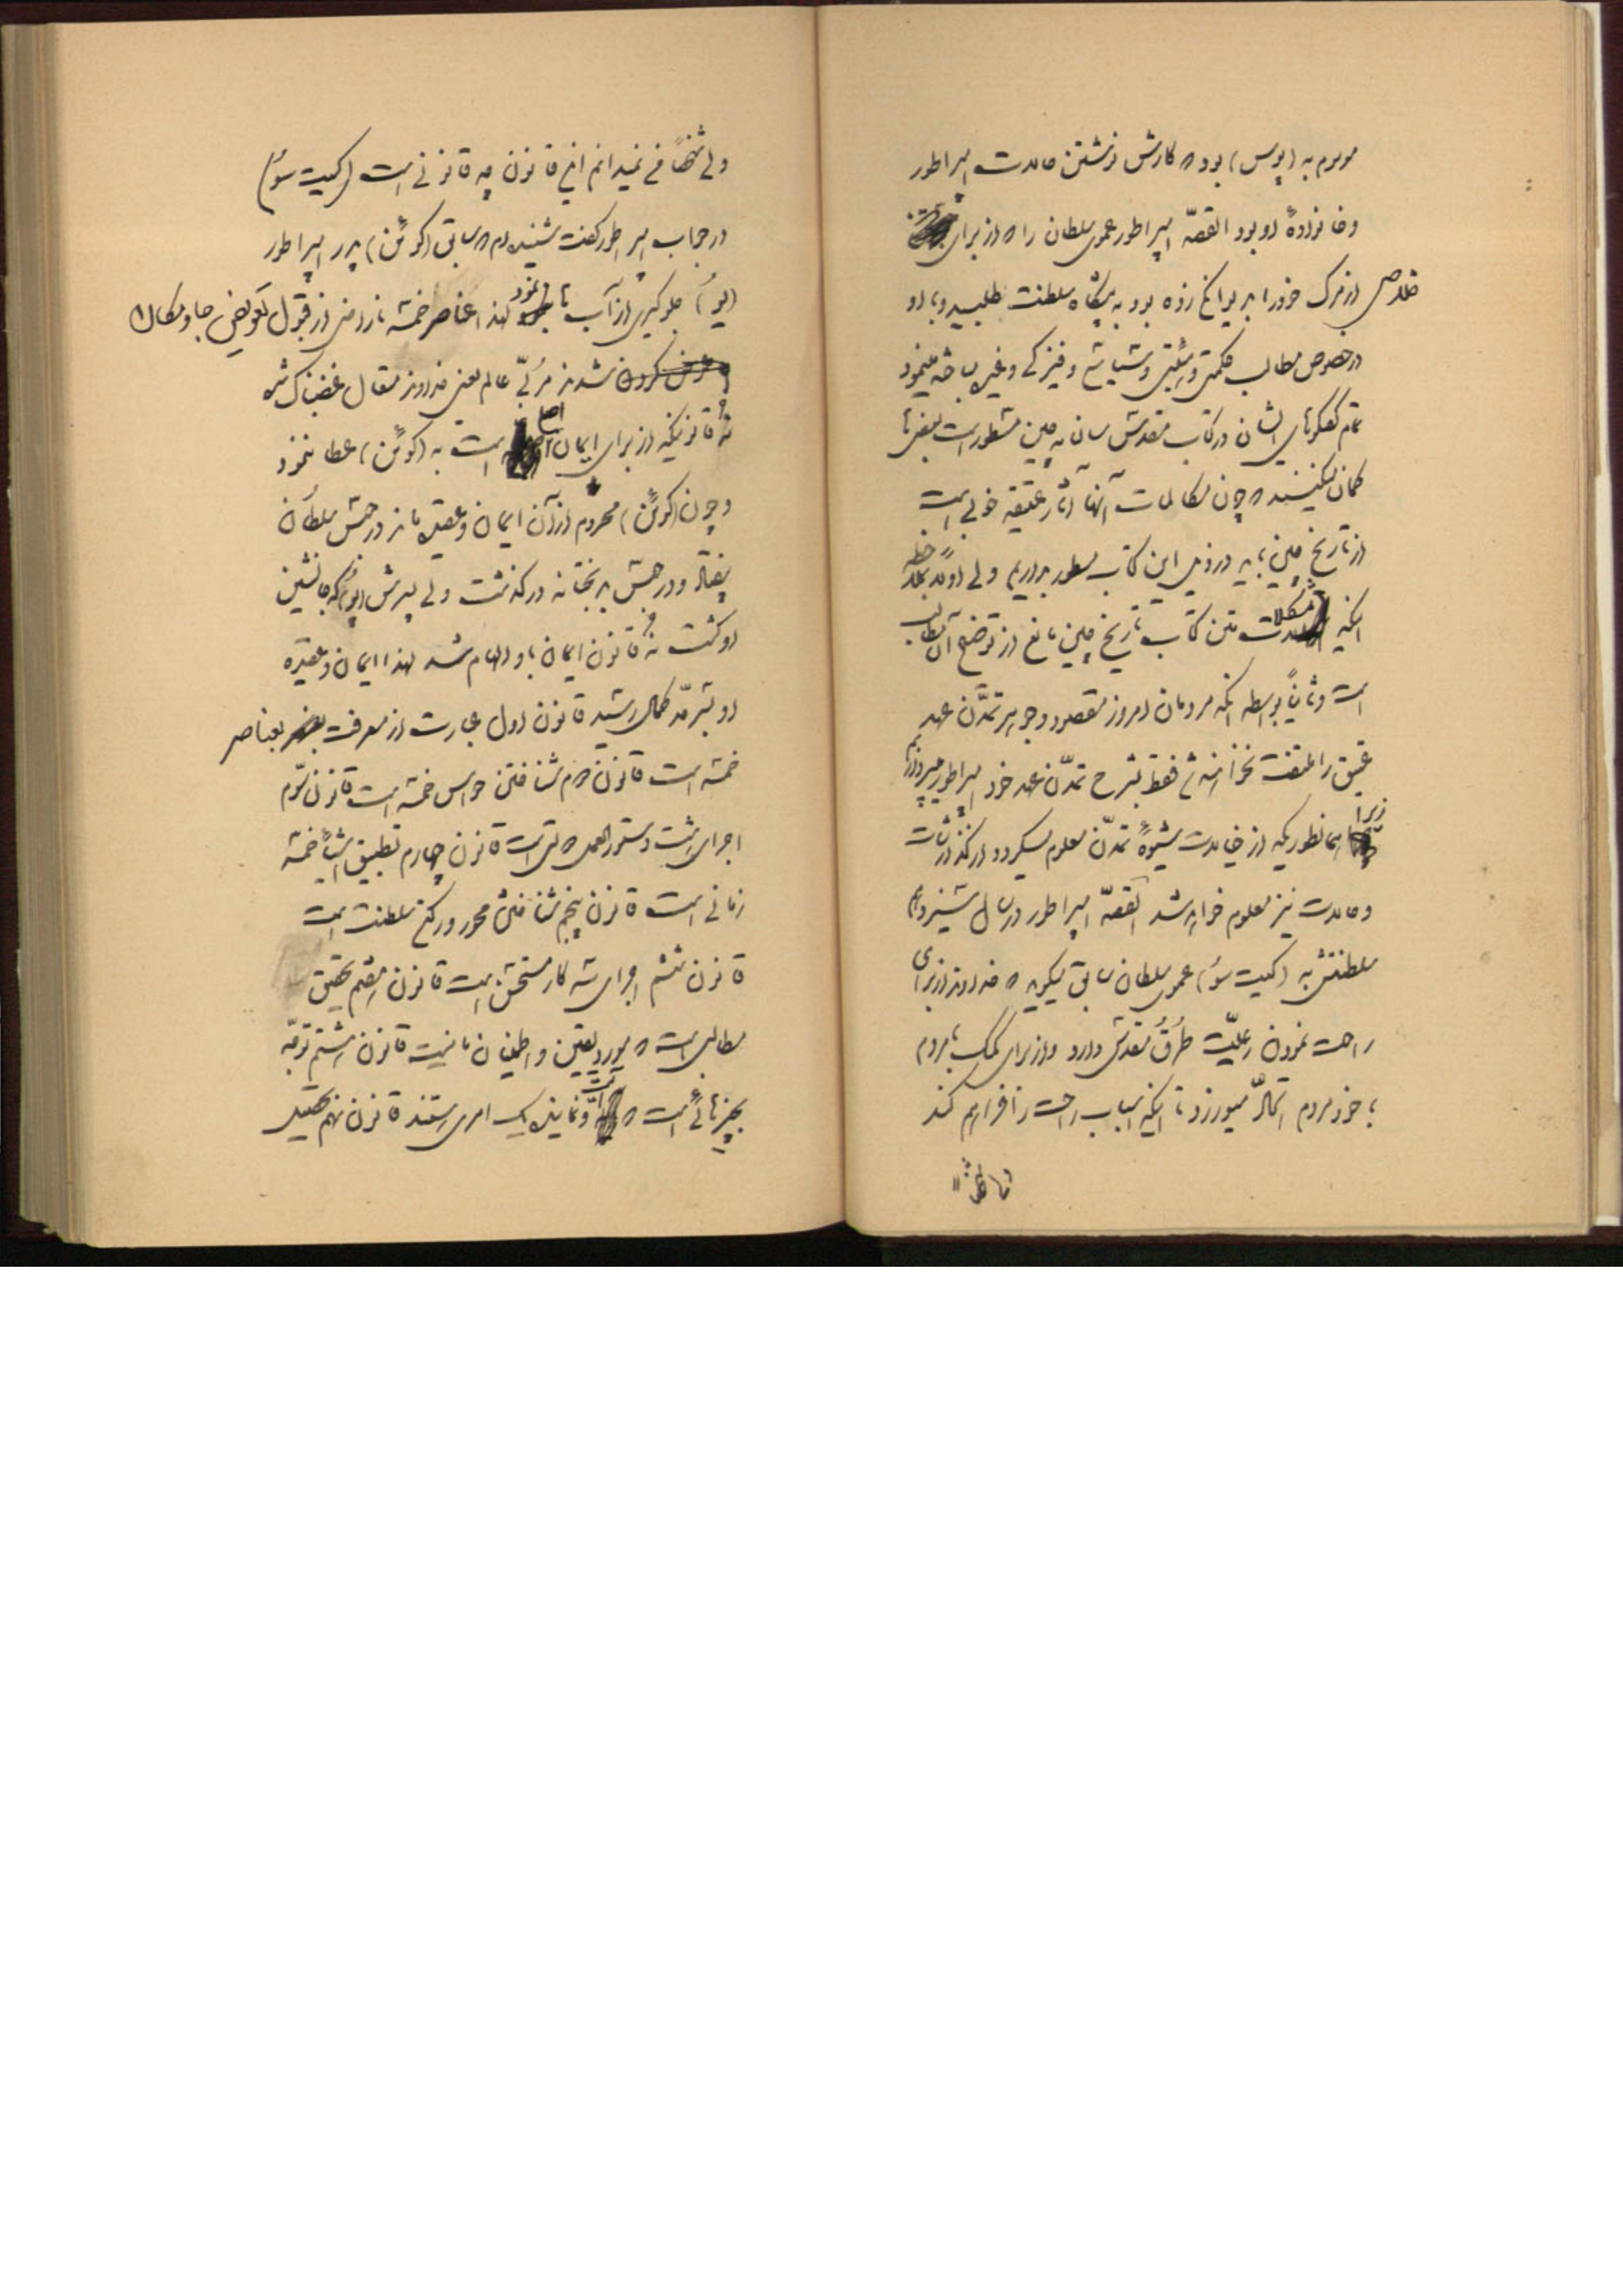 موسوم به (پوس) بود که کارش نوشتن حالات امپراطور
و خانوادهٔ او بود القصّه امپراطور عموی سلطان را که از برای
خلاصی از مرگ خود را بدیوانگی زده بود به پیشگاه سلطنت طلبید و با او
در خصوص مطالب حکمتی و هیئتی و شیمیائی و فیزیکی و غیره مباحثه مینمود
تمام گفتگوهای ایشان در کتاب مقدّس سان به چین مسطور است بعضی‌ها
گمان میکنند که چون مکالمات آنها آثار عتیقه خوبی است
از تاریخ چین باید در ذیل این کتاب مسطور بداریم ولی اولاً بملاحظه
اینکه مشکلات متن کتاب تاریخ چین مانع از توضیح آن مطالب
است و ثانیاً بواسطه آنکه مردمان امروز مقصود و جوهر تمدّن عهد
عتیق را ملتفت نخواهند شد فقط بشرح تمدّن عهد خود امپراطور میپردازیم
زیرا همانطوریکه از خیالات شیوهٔ تمدّن معلوم میگردد از گذارشات
و حالات نیز معلوم خواهد شد القصّه امپراطور در سال سیزدهم
سلطنتش به (کیت سو) عموی سلطان سابق میگوید که خداوند از برای
راحت نمودن رعیّت طُرُق مقدّسی دارد و از برای کمک با مردم
با خود مردم اتکالّ میورزد تا آنکه اسباب راحت را فراهم کند
ولی شخصاً نمیدانم این قانون چه قانونی است (کیت سو)
در جواب امپراطور گفت شنیده‌ام که سابق (کوئن) پدر امپراطور
(یو) جلوگیری از آب‌ها نمود لهذا عناصر خمسه ناراضی از قبول تعویض جا و مکان
شدند مربّی عالم یعنی خداوند متعال غضبناک شده
نُه قانونیکه از برای ایمان است به (کوئن) عطا ننمود
و چون (کوئن) محروم از آن ایمان و عقیده ماند در حبس سلطان
بیفتاد و در حبس بدبختانه درگذشت ولی پسرش (یو) که جانشین
او گشت نُه قانون ایمان باو الهام شد لهذا ایمان و عقیده
او بسرحدّ کمال رسید قانون اول عبارت از معرفت بعناصر
خمسه است قانون دوم شناختن حواس خمسه است قانون سوّم
اجرای هشت دستورالعمل دولتی است قانون چهارم تطبیق اشیاء خمسه
زمانی است قانون پنجم شناختن محور و رکن سلطنت است
قانون ششم اجرای سه کار مستحسن است قانون هفتم تحقیق
مطالبی است که مورد یقین و اطمینان ما نیست قانون هشتم توجّه
بچیزهائی است که و نماینده یک امری هستند قانون نهم تحصیل